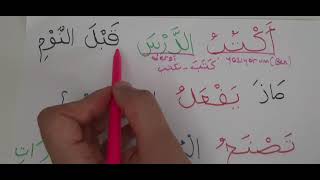 أَكْتُبُ الدَّرْسَ قَبْلَ النَّوْمِ
yazıyorum (Ben) كَتَبَ - يَكْتُبُ dersi
مَاذَ يَفْعَلُ
تَصْنَعُ